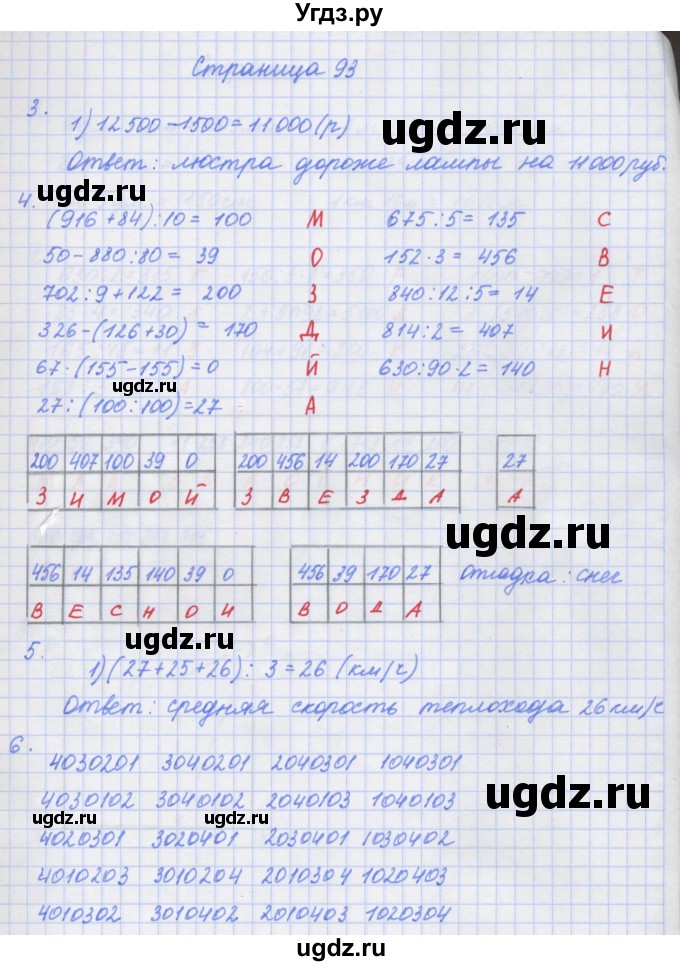 Угдз.ру
Страница 93
3.
1) 12500-1500=11000(р)
ugdz.ru
Ответ: люстра дороже лампы на 11000 руб.
ugdz.ru
4.
(916+84):10= 100 М 675:5= 135 С
50-880:80= 39 О 152·3= 456 В
702:9+122= 200 З 840:12:5= 14 Е
326-(126+30)= 170 Д 814:2= 407 И
67·(155-155)=0 Й 630:90·2= 140 Н
ugdz.ru ugdz.ru
27:(100:100)=27 А
200 407 100 39 0 200 456 14 200 170 27 27
З И М О Й З В Е З Д А А
ugdz.ru
456 14 135 140 39 0 456 39 170 27 Отгадка: снег
В Е С Н О Й В О Д А
ugdz.ru ugdz.ru
5.
1)(27+25+26): 3=26 (км/ч)
Ответ: средняя скорость теплохода 26 км/ч
6.
4030201 3040201 2040301 1040301
4030102 3040102 2040103 1040103
ugdz.ru ugdz.ru ugdz.ru
4020301 3020401 2030401 1030402
4010203 3010204 2010304 1020403
4010302 3010402 2010403 1020304
ugdz.ru